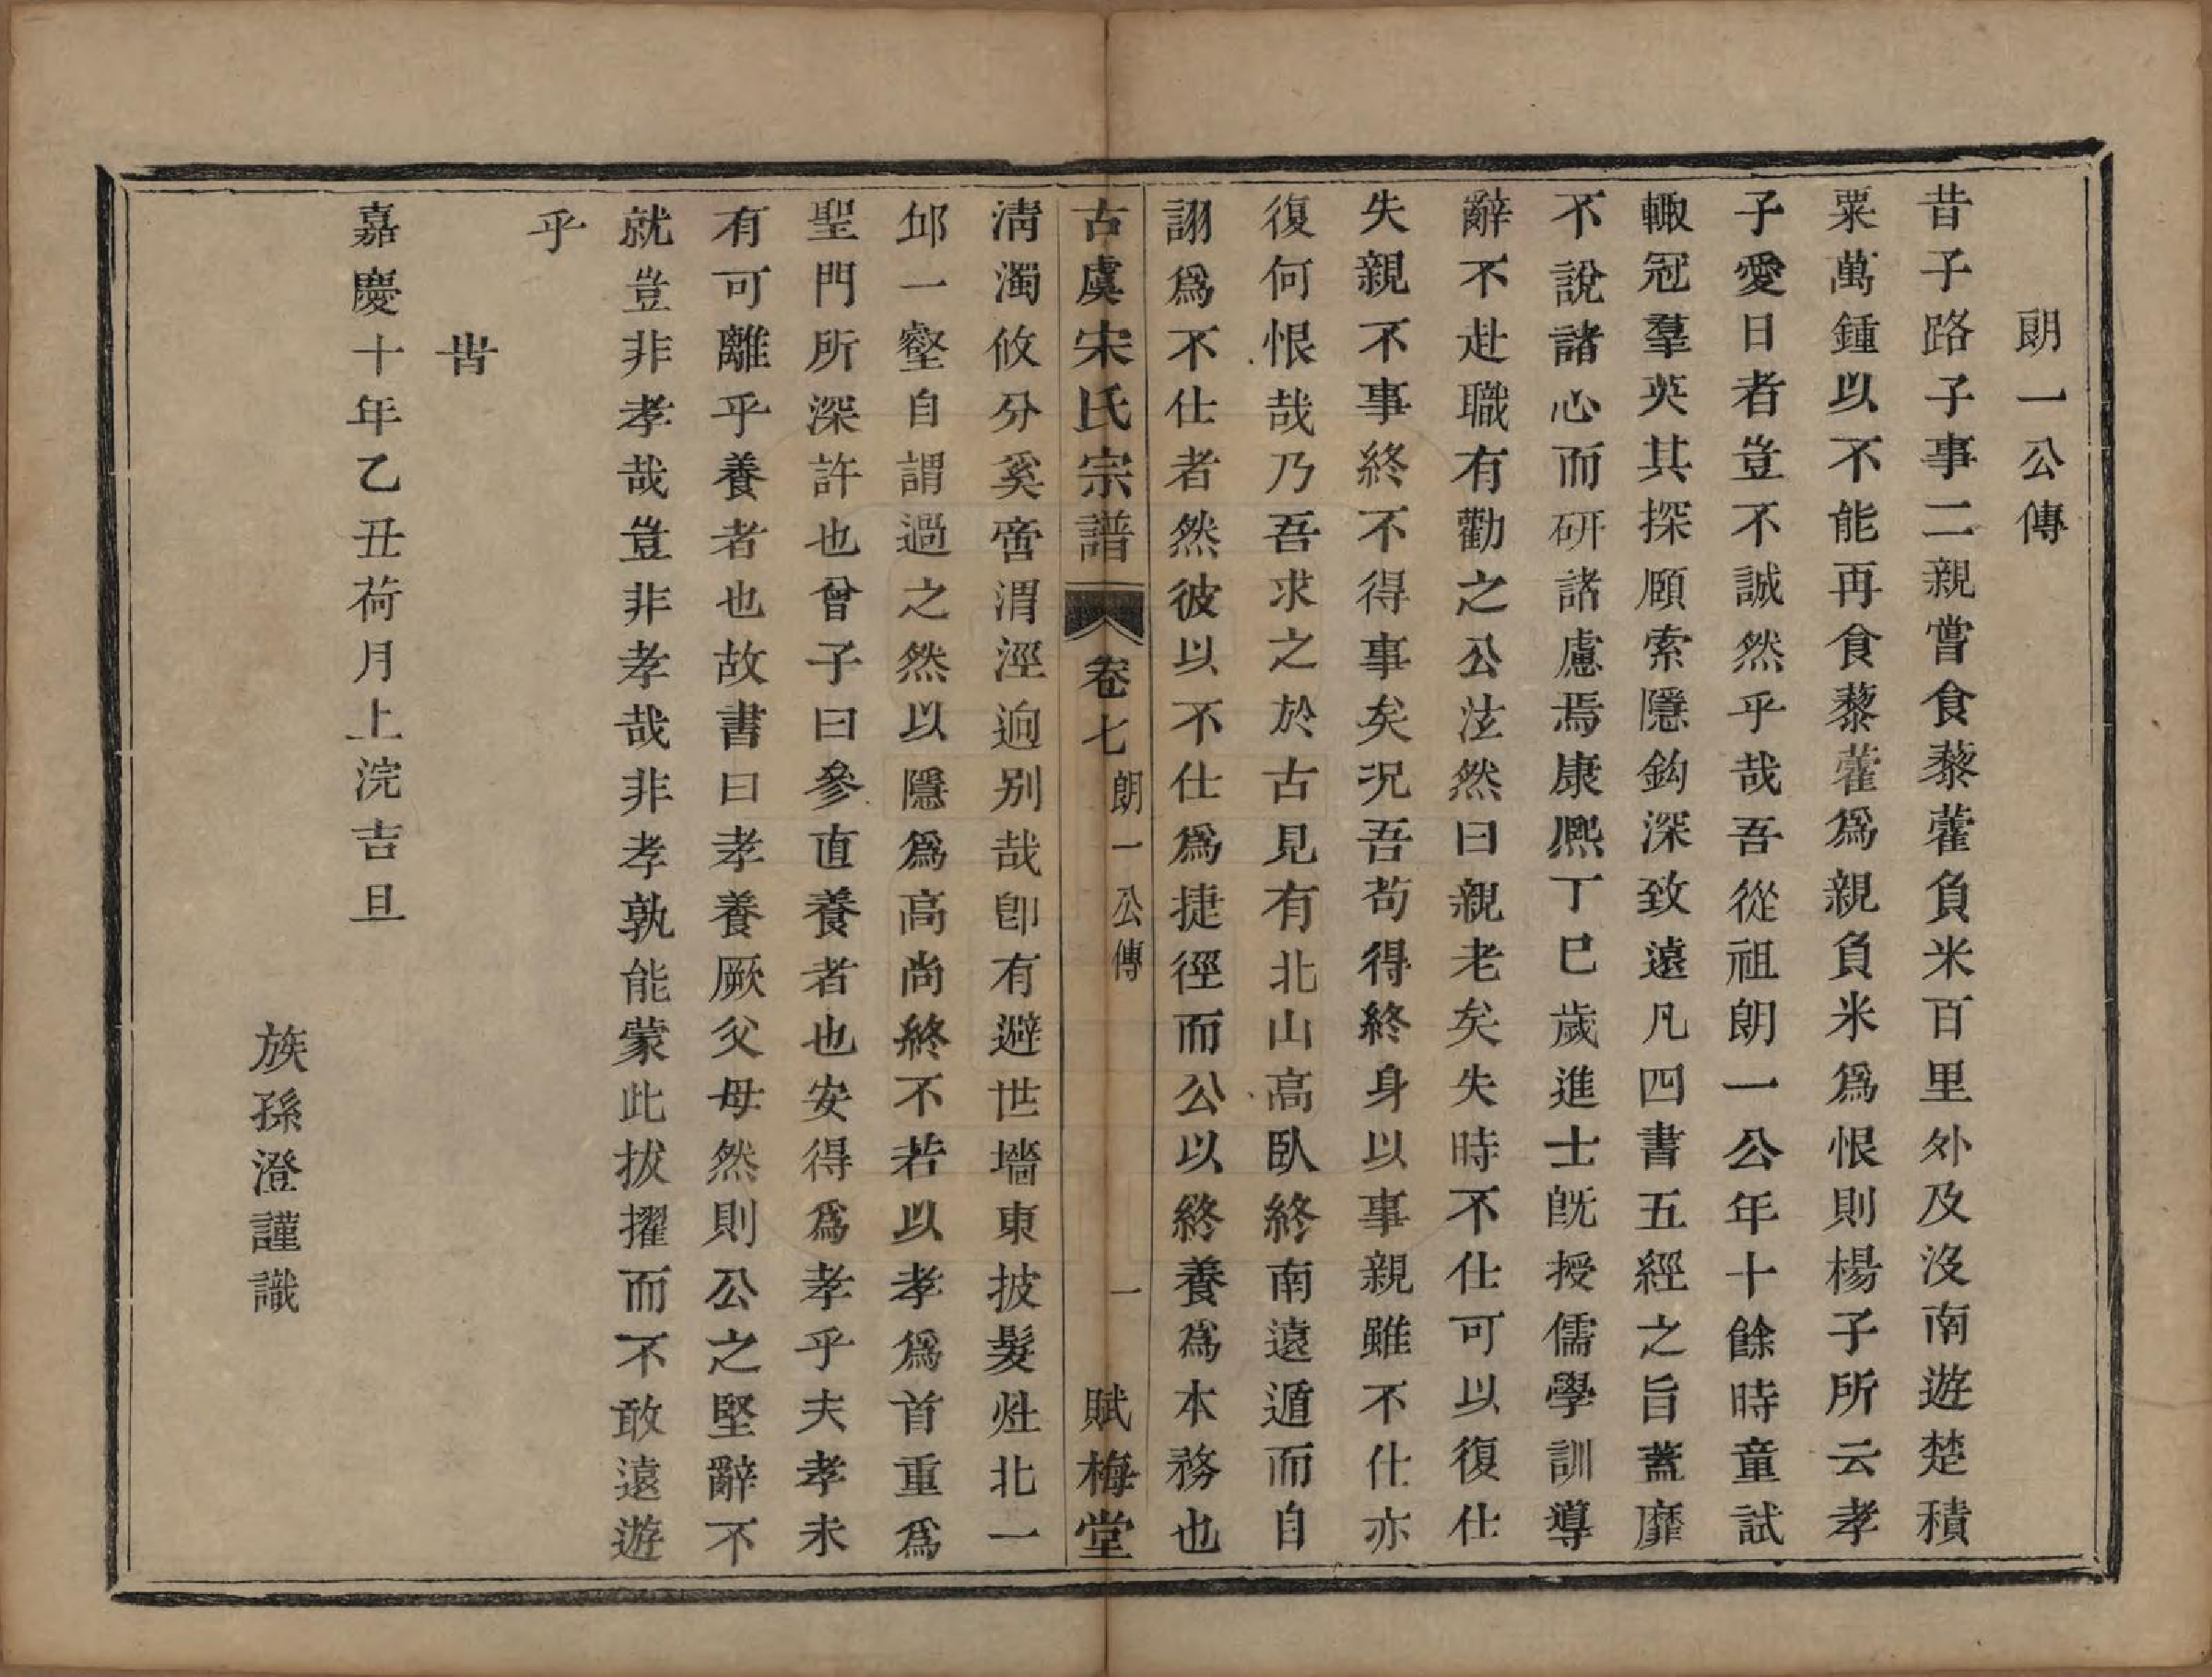 朗一公傳
昔子路子事二親嘗食藜藿負米百里外及沒南遊楚積
粟萬鍾以不能再食藜藿爲親負米爲恨則楊子所云孝
子愛日者豈不誠然乎哉吾從祖朗一公年十餘時童試
輙冠羣英其探賾索隱鈎深致遠凡四書五經之旨蓋靡
不說諸心而研諸慮焉康熈丁巳歲進士旣授儒學訓導
辭不赴職有勸之公泫然曰親老矣失時不仕可以復仕
失親不事終不得事矣况吾苟得終身以事親雖不仕亦
復何恨哉乃吾求之於古見有北山高臥終南遠遁而自
詡爲不仕者然彼以不仕爲捷徑而公以終養爲本務也
古虞宋氏宗譜 卷七 朗一公傳 一 賦梅堂
淸濁攸分奚啻渭涇逈别哉卽有避世墻東披髮灶北一
邱一壑自謂過之然以隱爲高尚終不若以孝爲首重爲
聖門所深許也曾子曰參直養者也安得爲孝乎夫孝未
有可離乎養者也故書曰孝養厥父母然則公之堅辭不
就豈非孝哉豈非孝哉非孝孰能蒙此拔擢而不敢遠遊
乎
旹
嘉慶十年乙丑荷月上浣吉旦
族孫澄謹識